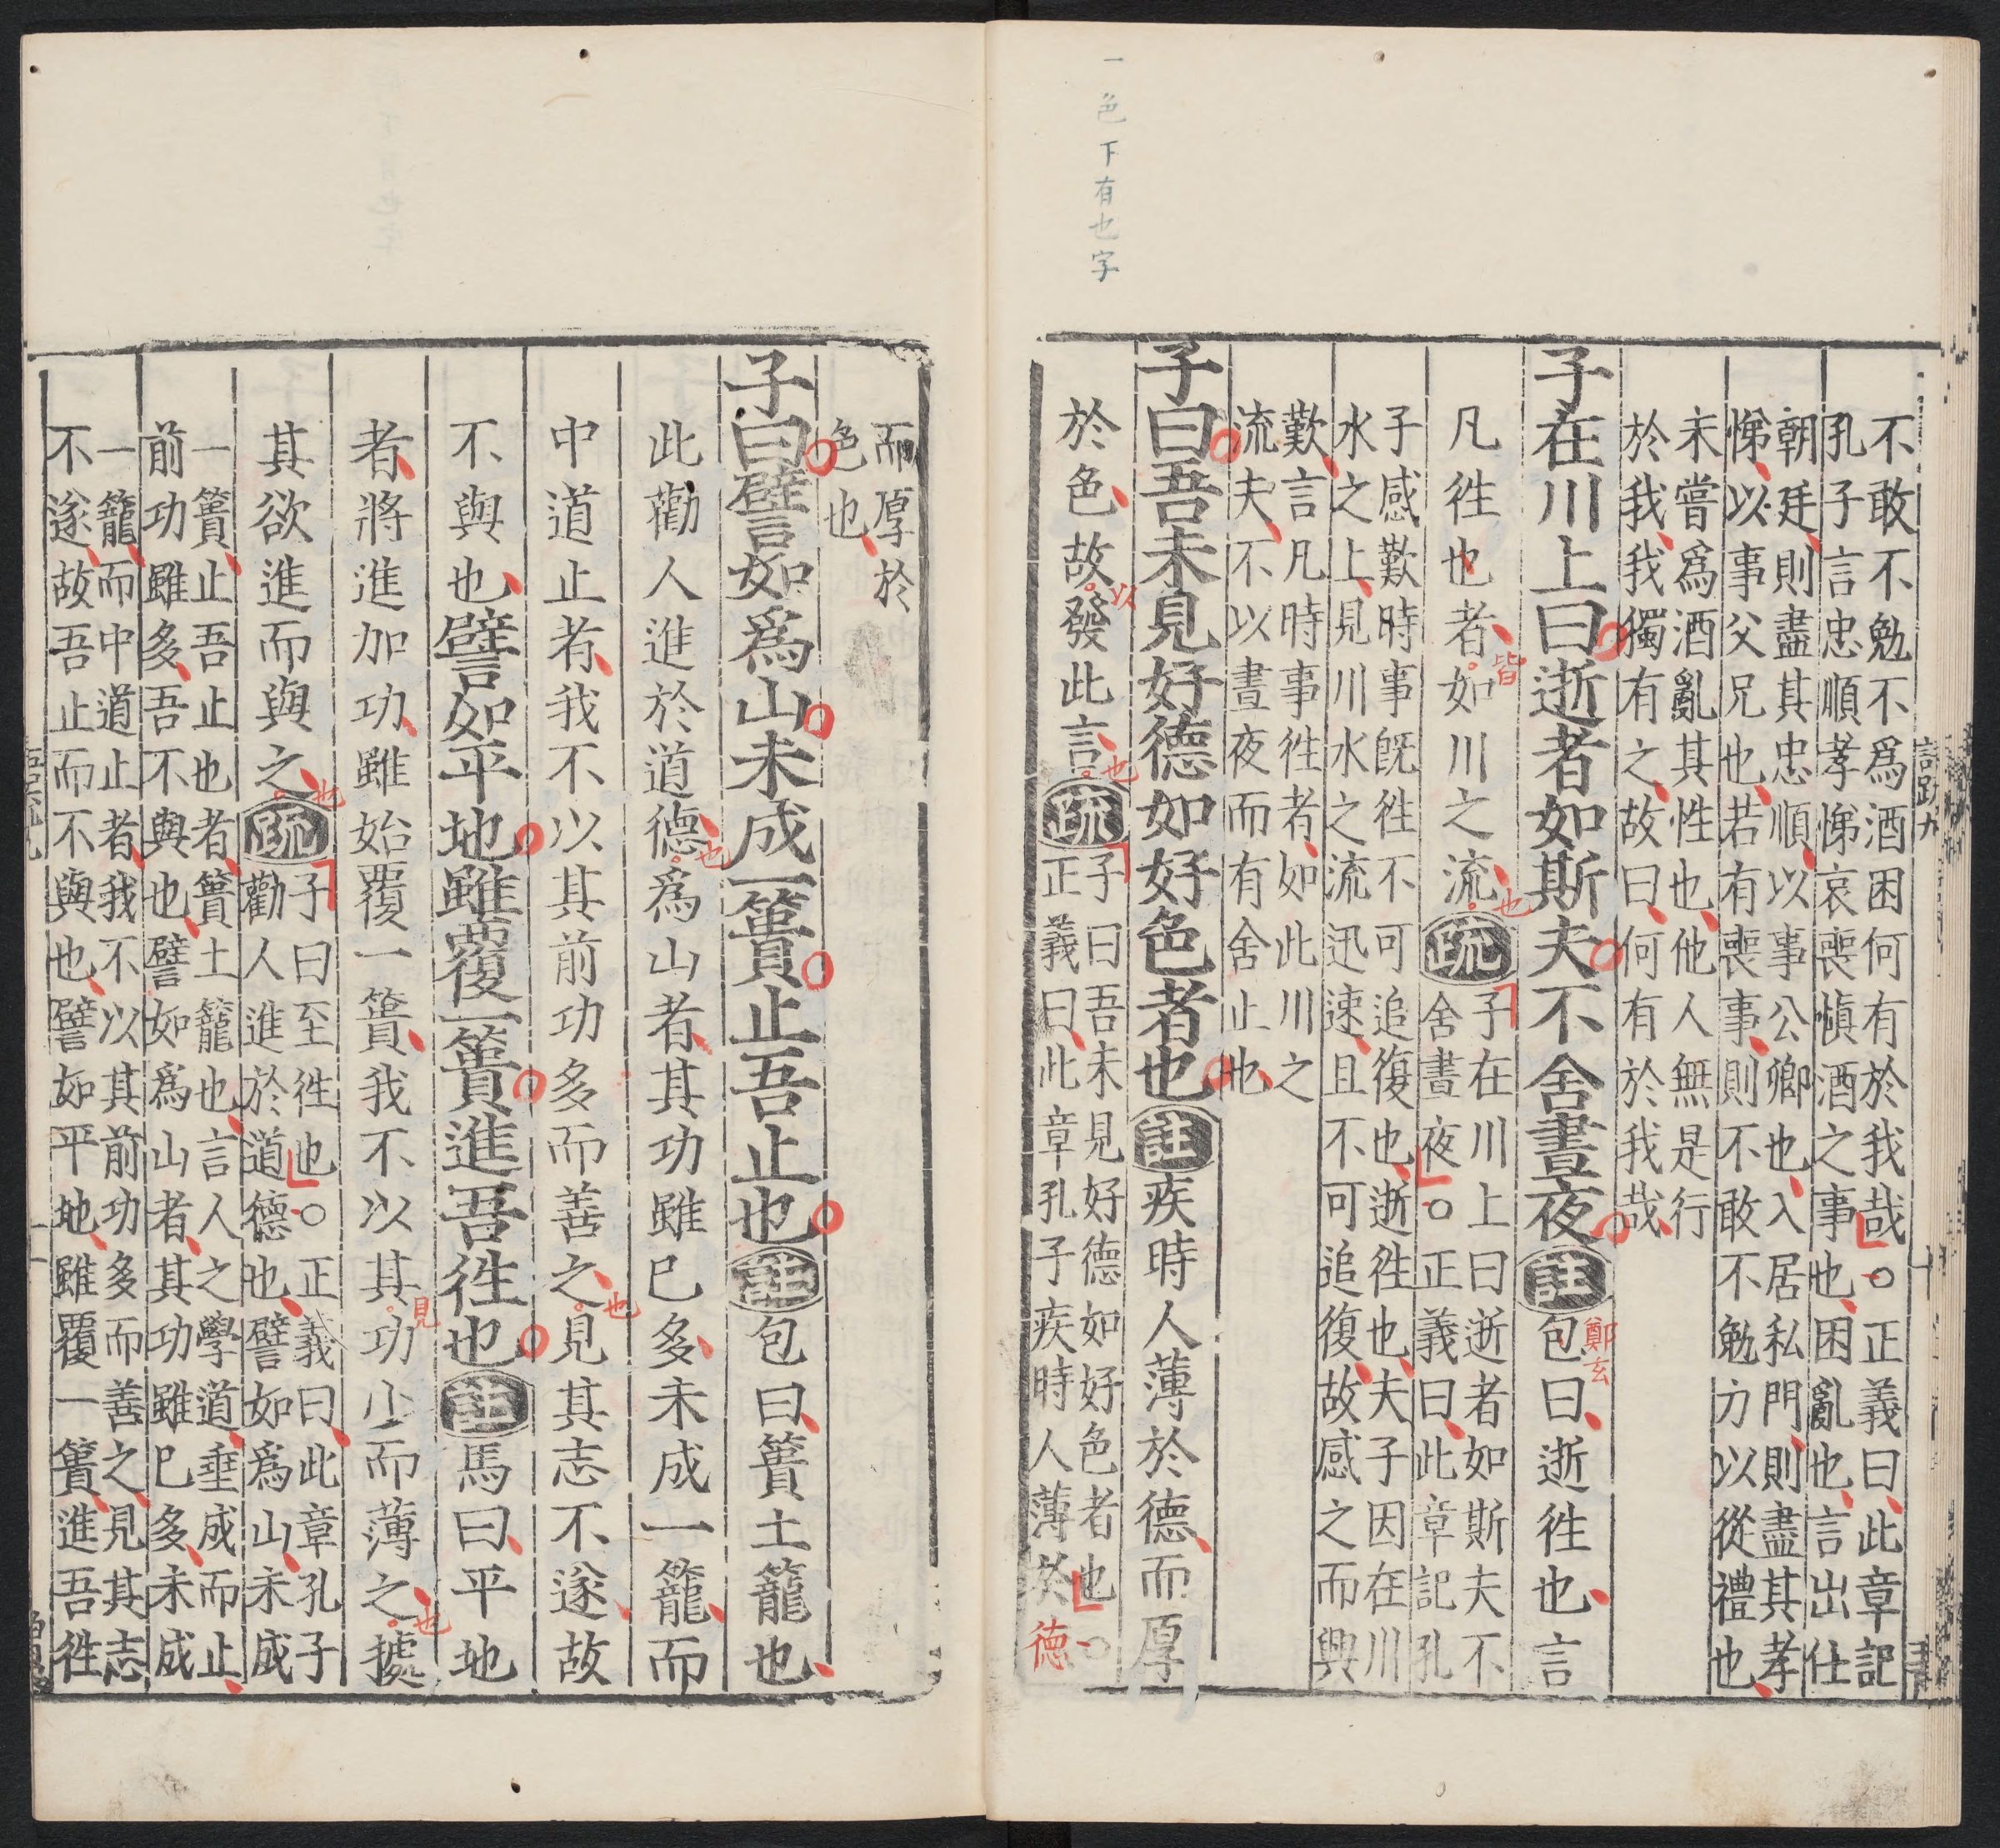 一色下有也字
不敢不勉不爲酒困何有於我哉○正義曰此章記
孔子言忠順孝悌哀喪愼酒之事也困亂也言出仕
朝廷則盡其忠順以事公卿也入居私門則盡其孝
悌以事父兄也若有喪事則不敢不勉力以從禮也
未嘗爲酒亂其性也他人無是行
於我我獨有之故曰何有於我哉
子在川上曰逝者如斯夫不舍晝夜註包曰逝徃也言
鄭玄
凡徃也者如川之流疏子在川上曰逝者如斯夫不
皆
也
舍晝夜○正義曰此章記孔
子感歎時事旣徃不可追復也逝徃也夫子因在川
水之上見川水之流迅速且不可追復故感之而興
歎言凡時事徃者如此川之
流夫不以晝夜而有舍止也
子曰吾未見好德如好色者也註疾時人薄於德而厚
於色故發此言疏子曰吾未見好德如好色者也○
以
也
正義曰此章孔子疾時人薄於德
德
而厚於
色也
子曰譬如爲山未成一簣止吾止也註包曰簣土籠也
此勸人進於道德爲山者其功雖已多未成一籠而
也
中道止者我不以其前功多而善之見其志不遂故
也
不與也譬如平地雖覆一簣進吾徃也註馬曰平地
者將進加功雖始覆一簣我不以其功少而薄之據
見
也
其欲進而與之疏子曰至徃也○正義曰此章孔子
也
勸人進於道德也譬如爲山未成
一簣止吾止也者簣土籠也言人之學道垂成而止
前功雖多吾不與也譬如爲山者其功雖已多未成
一籠而中道止者我不以其前功多而善之見其志
不遂故吾止而不與也譬如平地雖覆一簣進吾徃